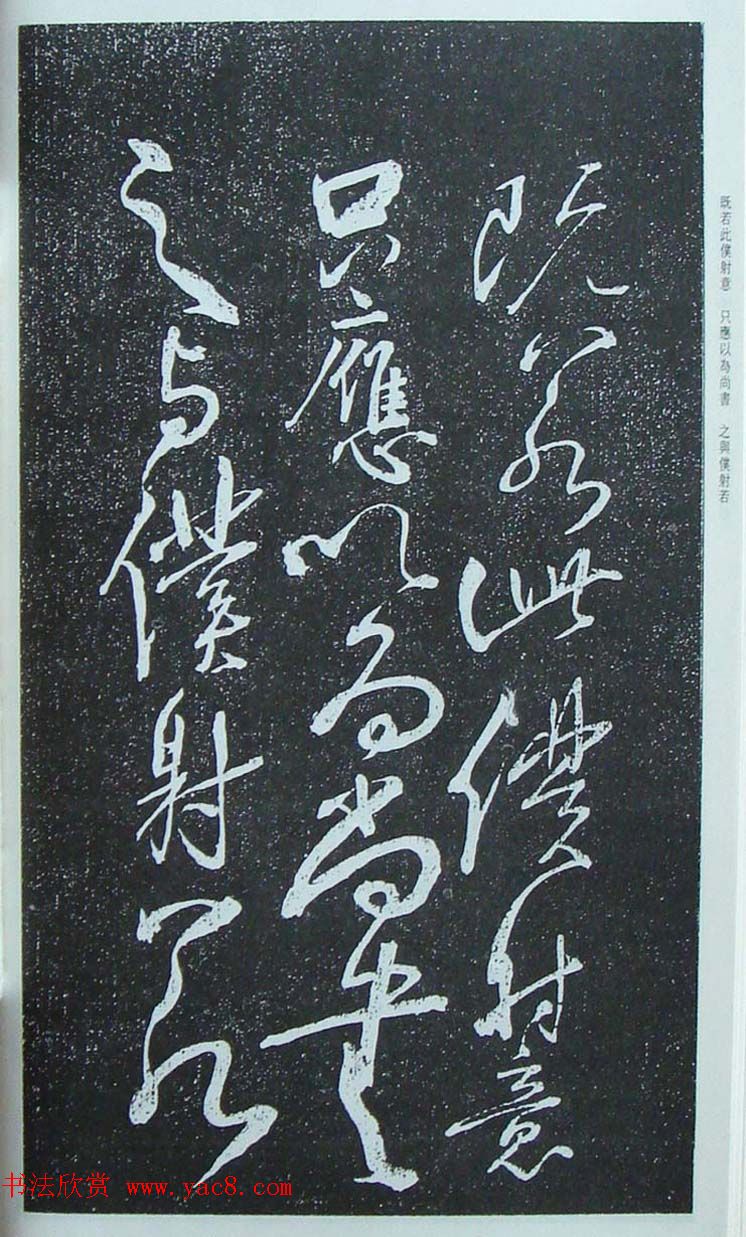 既若此僕射意
只應以為尚書
之与僕射若
既若此僕射意　只應以為尚書　之與僕射若
书法欣赏 www.yac8.com